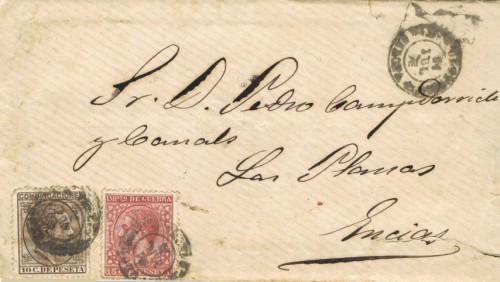 Sr. D. Pedro Campderrich
y Canals
Las Planas
Encias
COMUNICACIONES
10 C. DE PESETA
IMPTO DE GUERRA
15 C. DE PESETA